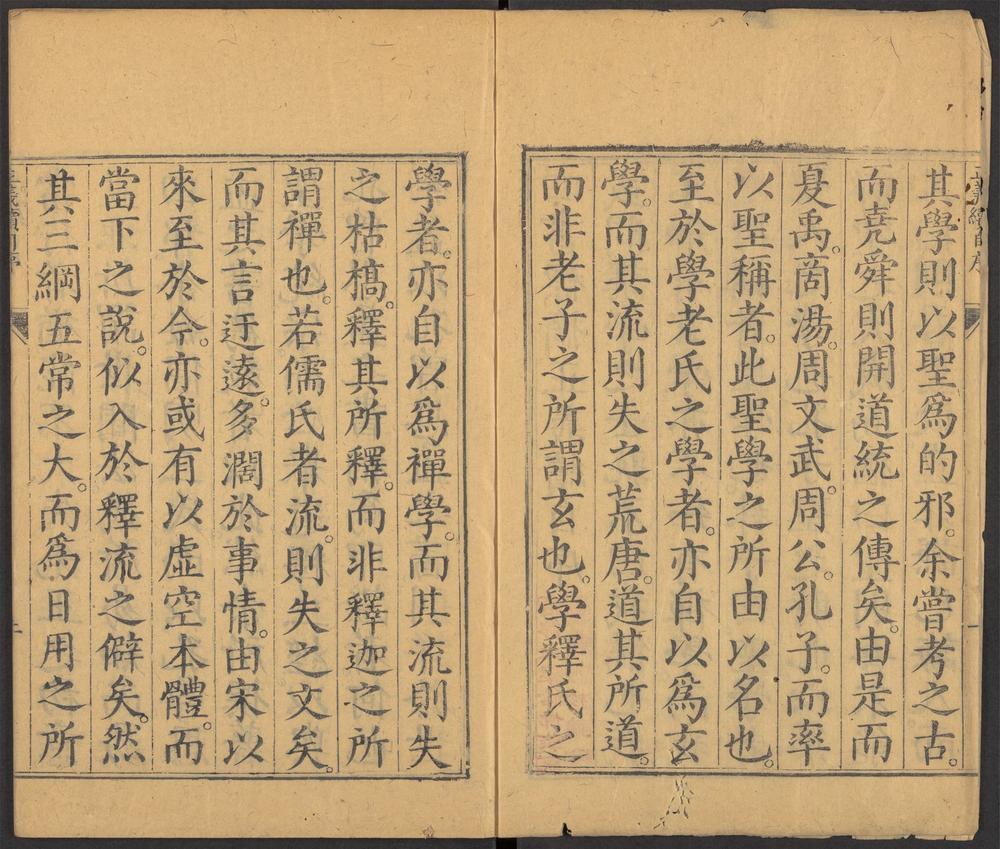 其學則以聖爲的邪。余嘗考之古。
而堯舜則開道統之傳矣。由是而
夏禹。商湯。周文武。周公。孔子。而率
以聖稱者。此聖學之所由以名也。
至於學老氏之學者。亦自以爲玄
學。而其流則失之荒唐。道其所道。
而非老子之所謂玄也。學釋氏之
學者。亦自以爲禪學。而其流則失
之枯槁。釋其所釋。而非釋迦之所
謂禪也。若儒氏者流。則失之文矣。
而其言迂遠。多濶於事情。由宋以
來至於今。亦或有以虛空本體。而
當下之說。似入於釋流之僻矣。然
其三綱五常之大。而爲日用之所